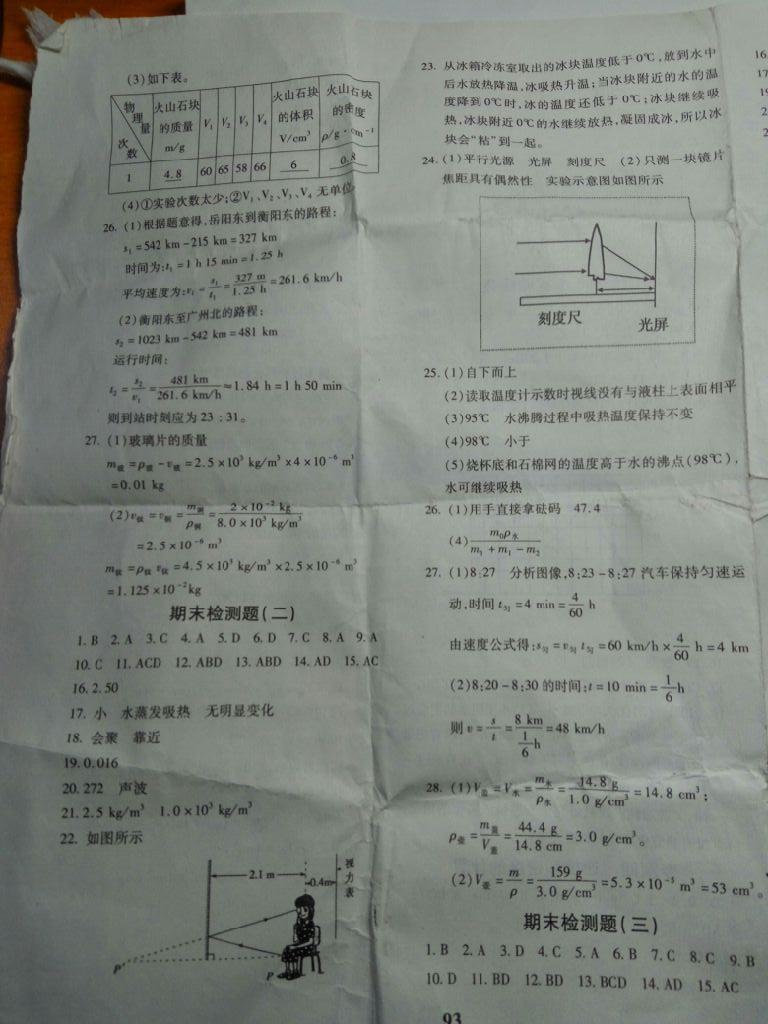 (3)如下表。
物理量 次数 火山石块的质量 m/g V₁ V₂ V₃ V₄ 火山石块的体积 V/cm³ 火山石块的密度 ρ/g·cm⁻¹
1 4.8 60 65 58 66 6 0.8
(4)①实验次数太少;②V₁、V₂、V₃、V₄ 无单位
26. (1)根据题意得,岳阳东到衡阳东的路程:
s₁=542 km-215 km=327 km
时间为:t₁=1 h 15 min=1.25 h
平均速度为:v₁=s₁/t₁=327 m/1.25 h=261.6 km/h
(2)衡阳东至广州北的路程:
s₂=1023 km-542 km=481 km
运行时间:
t₂=s₂/v₁=481 km/261.6 km/h≈1.84 h=1 h 50 min
则到站时刻应为 23:31。
27. (1)玻璃片的质量
m玻=ρ玻·v玻=2.5×10³ kg/m³×4×10⁻⁶ m³
=0.01 kg
(2)v钛=v钢=m钢/ρ钢=2×10⁻² kg/8.0×10³ kg/m³
=2.5×10⁻⁶ m³
m钛=ρ钛v钛=4.5×10³ kg/m³×2.5×10⁻⁶ m³
=1.125×10⁻²kg
期末检测题(二)
1. B 2. A 3. C 4. A 5. D 6. D 7. C 8. A 9. A
10. C 11. ACD 12. ABD 13. ABD 14. AD 15. AC
16. 2.50
17. 小 水蒸发吸热 无明显变化
18. 会聚 靠近
19. 0.016
20. 272 声波
21. 2.5 kg/m³ 1.0×10³ kg/m³
22. 如图所示
2.1 m
0.4m
视力表
P'
P
23. 从冰箱冷冻室取出的冰块温度低于0℃,放到水中
后水放热降温,冰吸热升温;当冰块附近的水的温
度降到0℃时,冰的温度还低于0℃;冰块继续吸
热,冰块附近0℃的水继续放热,凝固成冰,所以冰
块会“粘”到一起。
24. (1)平行光源 光屏 刻度尺 (2)只测一块镜片
焦距具有偶然性 实验示意图如图所示
刻度尺
光屏
25. (1)自下而上
(2)读取温度计示数时视线没有与液柱上表面相平
(3)95℃ 水沸腾过程中吸热温度保持不变
(4)98℃ 小于
(5)烧杯底和石棉网的温度高于水的沸点(98℃),
水可继续吸热
26. (1)用手直接拿砝码 47.4
(4)m₀ρ水/m₁+m₁-m₂
27. (1)8:27 分析图像,8:23-8:27 汽车保持匀速运
动,时间 t匀=4 min=4/60 h
由速度公式得:s匀=v匀 t匀=60 km/h×4/60 h=4 km
(2)8:20-8:30的时间:t=10 min=1/6h
则 v=s/t=8 km/(1/6h)=48 km/h
28. (1)V盖=V水=m水/ρ水=14.8 g/1.0 g/cm³=14.8 cm³;
ρ壶=m盖/V盖=44.4 g/14.8 cm=3.0 g/cm³。
(2)V壶=m/ρ=159 g/3.0 g/cm³=5.3×10⁻⁵ m³=53 cm³。
期末检测题(三)
1. B 2. A 3. D 4. C 5. A 6. B 7. C 8. C 9. B
10. D 11. BD 12. BD 13. BCD 14. AD 15. AC
93
16
17
19
2
2